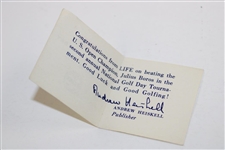 Congratulations from LIFE on beating the
U. S. Open Champion, Julius Boros in the
second annual National Golf Day Tourna-
ment. Good Luck and Good Golfing!
Andrew Heiskell
ANDREW HEISKELL
Publisher